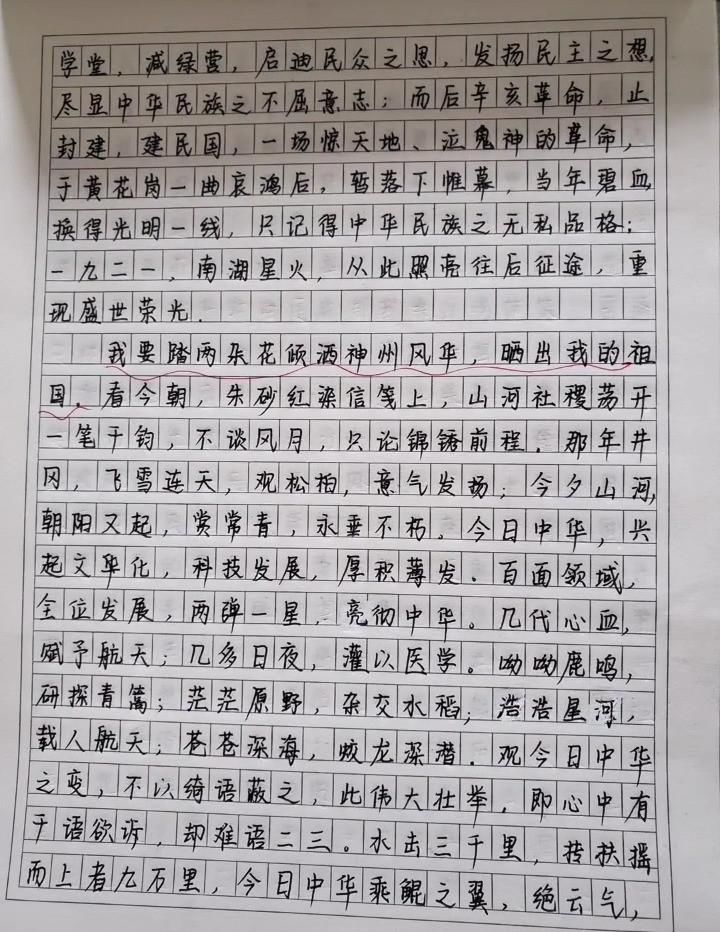 学堂，减绿营，启迪民众之思，发扬民主之想，
尽显中华民族之不屈意志；而后辛亥革命，止
封建，建民国，一场惊天地、泣鬼神的革命，
于黄花岗一曲哀鸿后，暂落下帷幕，当年碧血
换得光明一线，只记得中华民族之无私品格；
一九二一，南湖星火，从此照亮往后征途，重
现盛世荣光．
我要踏两朵花倾洒神州风华，晒出我的祖
国．看今朝，朱砂红染信笺上，山河社稷荡开
一笔千钧，不谈风月，只论锦锈前程．那年井
冈，飞雪连天，观松柏，意气发扬；今夕山河，
朝阳又起，赏常青，永垂不朽。今日中华，兴
起文华化，科技发展，厚积薄发．百面领域，
全位发展，两弹一星，亮彻中华。几代心血，
赋予航天；几多日夜，灌以医学。呦呦鹿鸣，
研探青篙；茫茫原野，杂交水稻；浩浩星河，
载人航天；苍苍深海，蛟龙深潜．观今日中华
之变，不以绮语蔽之，此伟大壮举，即心中有
千语欲诉，却难语二三。水击三千里，抟扶摇
而上者九万里，今日中华乘鲲之翼，绝云气，